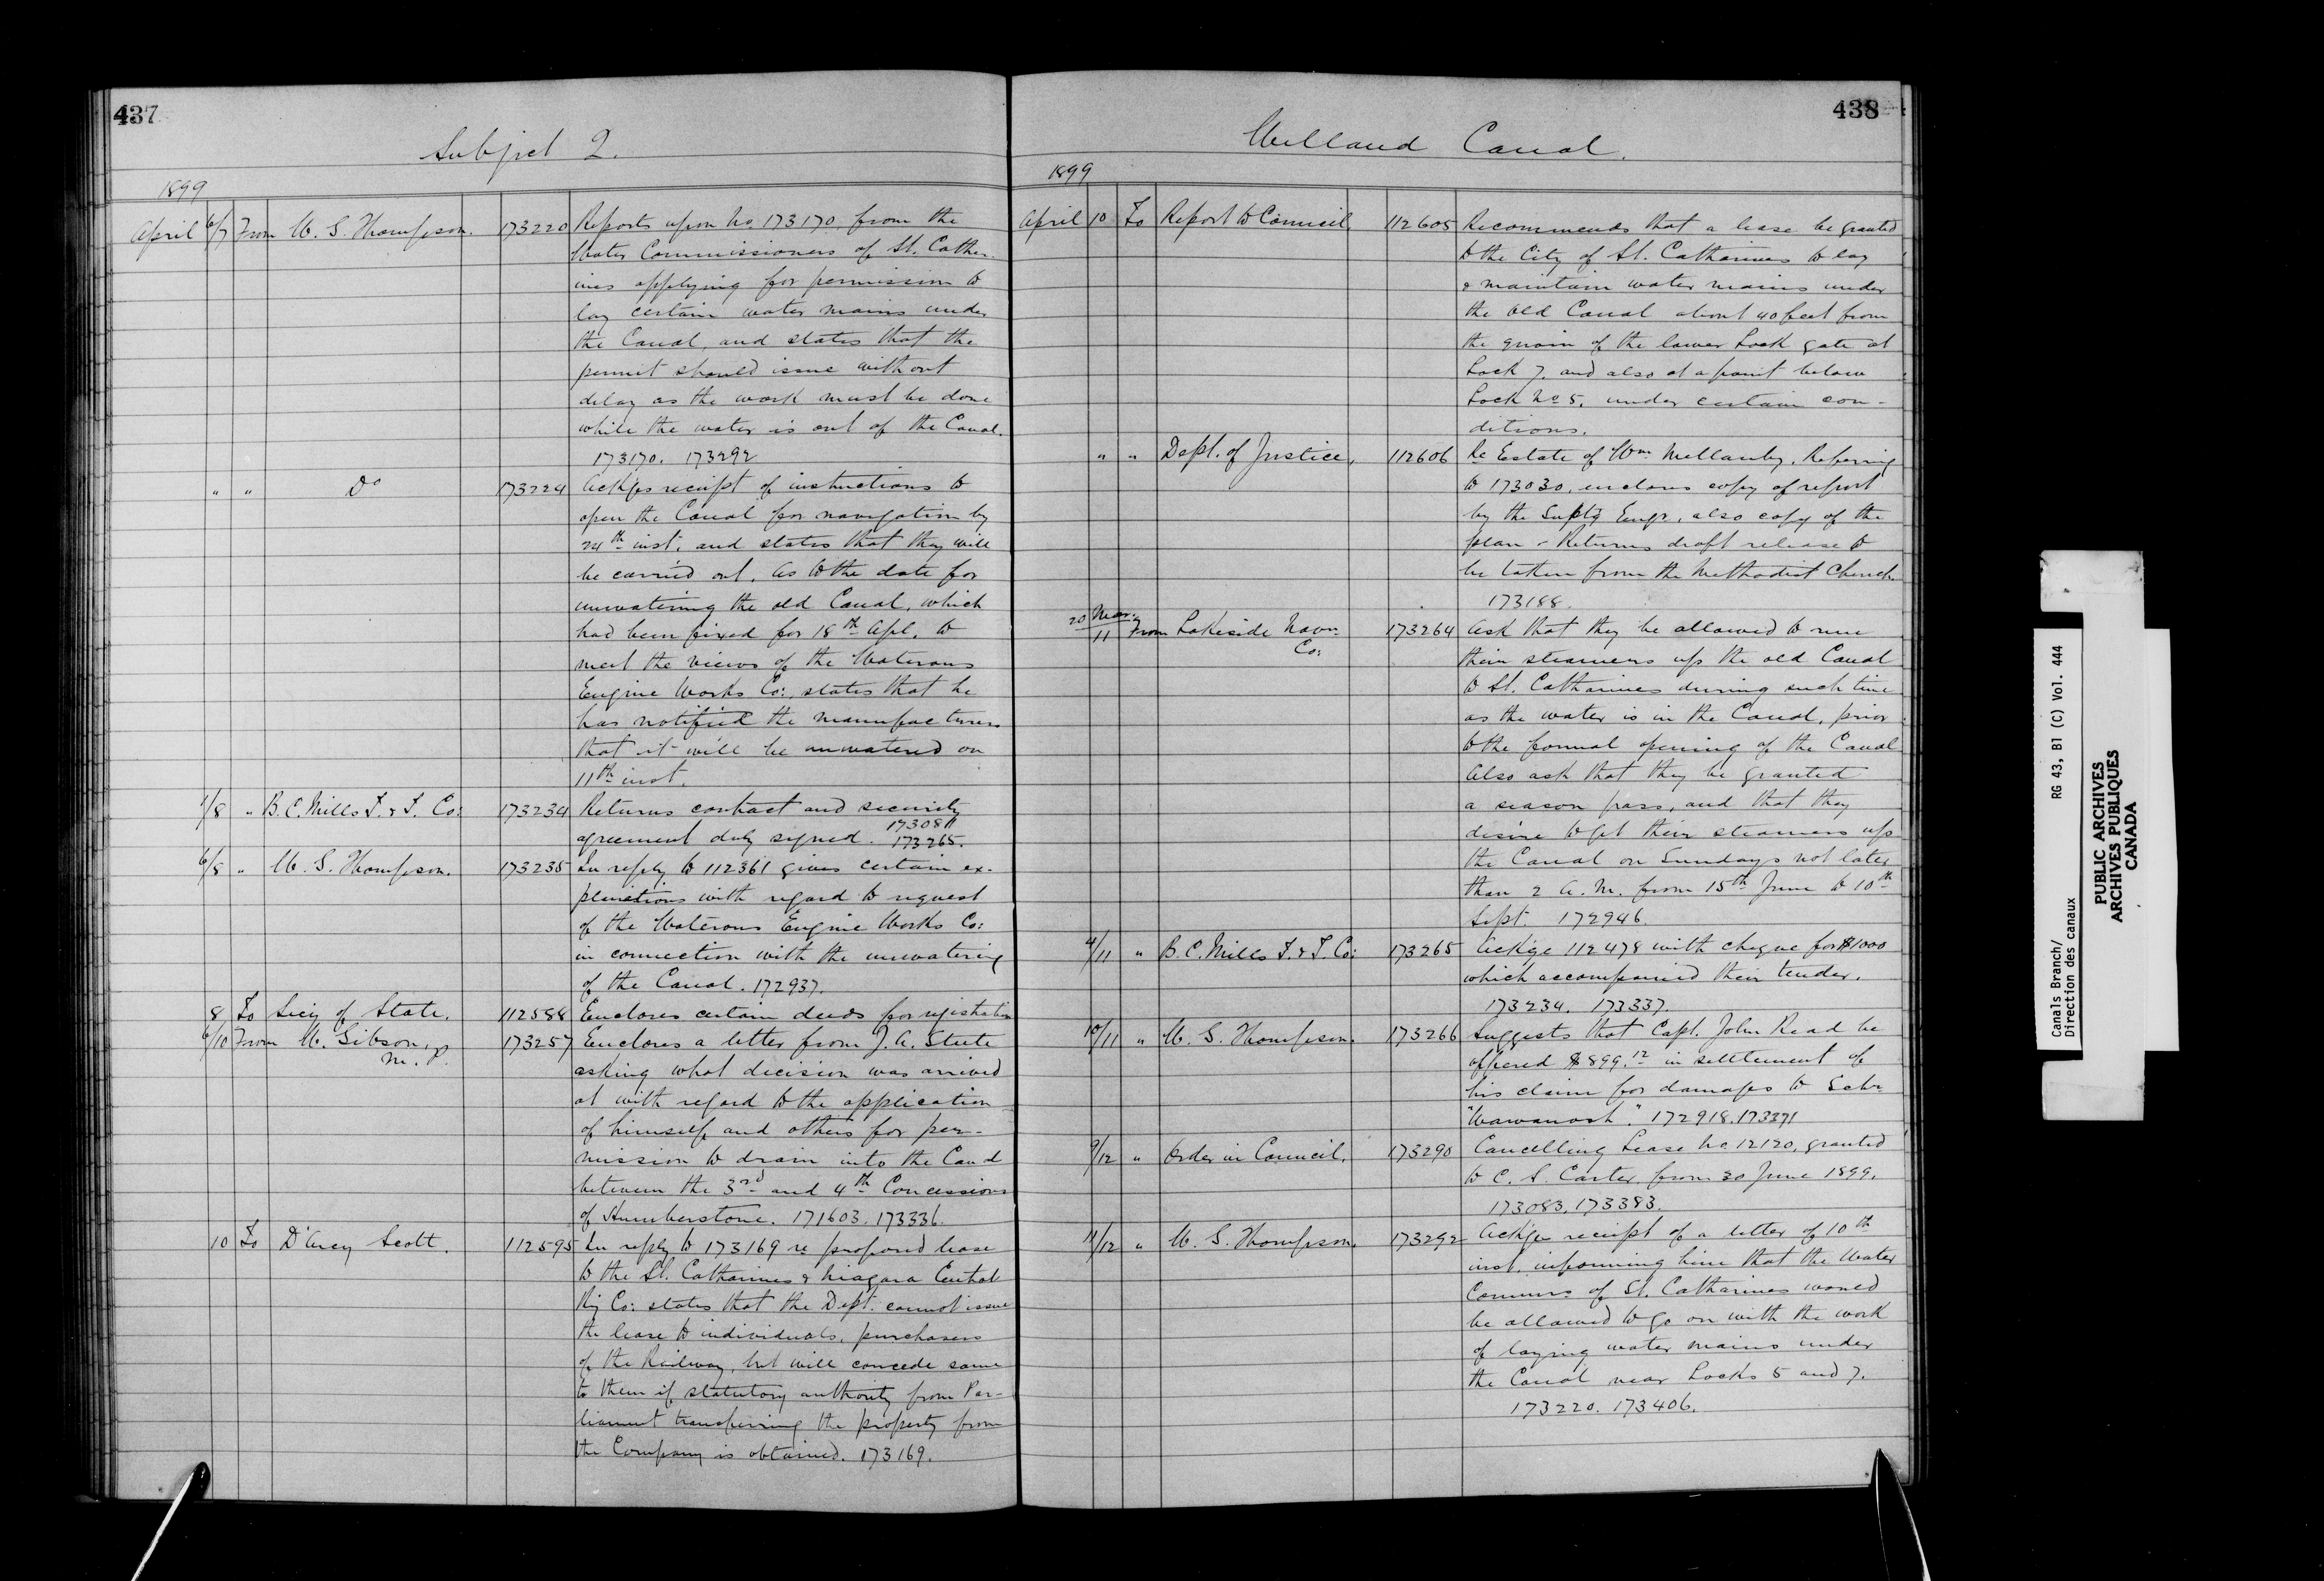 437
Subject 2.
1899
April 6/7 From W. G. Thompson. 173220 Reports upon No. 173170, from the
Water Commissioners of St. Cather-
ines applying for permission to
lay certain water mains under
the Canal, and states that the
permit should issue without
delay as the work must be done
while the water is out of the Canal.
173170. 173292
" " Do 173224 Ackges receipt of instructions to
open the Canal for navigation by
24th inst. and states that they will
be carried out. As to the date for
unwatering the old Canal, which
had been fixed for 18th Apl. to
meet the views of the Waterous
Engine Works Co:, states that he
has notified the manufacturers
that it will be unwatered on
11th inst.
1/8 " B. C. Mills T. & T. Co: 173234 Returns contract and security
agreement duly signed. 173081
173265.
6/8 " W. G. Thompson. 173235 In reply to 112361 gives certain ex-
planations with regard to request
of the Waterous Engine Works Co:
in connection with the unwatering
of the Canal. 172937.
8 To Secy of State. 112588 Encloses certain deeds for registration
6/10 From W. Gibson, 173257 Encloses a letter from J. A. Steele
M. P.
asking what decision was arrived
at with regard to the application
of himself and others for per-
mission to drain into the Canal
between the 3rd and 4th Concessions
of Humberstone. 171603. 173336.
10 To D'Arcy Scott. 112595 In reply to 173169 re proposed lease
to the St. Catharines & Niagara Central
Ry Co: states that the Dept. cannot issue
the lease to individuals, purchasers
of the Railway, but will concede same
to them if statutory authority from Par-
liament transferring the property from
the Company is obtained. 173169.
438
Welland Canal.
1899
April 10 To Report to Council. 112605 Recommends that a lease be granted
to the City of St. Catharines to lay
& maintain water mains under
the old Canal about 40 feet from
the quoin of the lower Lock gate at
Lock 7. and also at a point below
Lock No 5, under certain con-
ditions.
" " Dept. of Justice, 112606 Re Estate of Wm Mellanby. Referring
to 173030, encloses copy of report
by the Suptg Engr, also copy of the
plan - Returns draft release to
be taken from the Methodist Church.
173188.
20 Mar.
11 From Lakeside Navn 173264 Ask that they be allowed to run
Co:
their steamers up the old Canal
to St. Catharines during such time
as the water is in the Canal, prior
to the formal opening of the Canal
Also ask that they be granted
a season pass, and that they
desire to get their steamers up
the Canal on Sundays not later
than 2 A. M. from 15th June to 10th
Sept. 172946.
4/11 " B. C. Mills T. & T. Co: 173265 Ackge 112478 with cheque for $1000
which accompanied their tender.
173234. 173337.
10/11 " W. G. Thompson. 173266 Suggests that Capt. John Read be
offered $899.12 in settlement of
his claim for damages to Schr
"Wawanosh". 172918. 173371
9/12 " Order in Council. 173290 Cancelling Lease No 12120, granted
to C. S. Carter, from 30 June 1899.
173083. 173383.
11/12 " W. G. Thompson. 173292 Ackges receipt of a letter of 10th
inst. informing him that the Water
Commrs of St. Catharines would
be allowed to go on with the work
of laying water mains under
the Canal near Locks 5 and 7.
173220. 173406.
Canals Branch/ RG 43, B1 (C) Vol. 444
Direction des canaux
PUBLIC ARCHIVES
ARCHIVES PUBLIQUES
CANADA